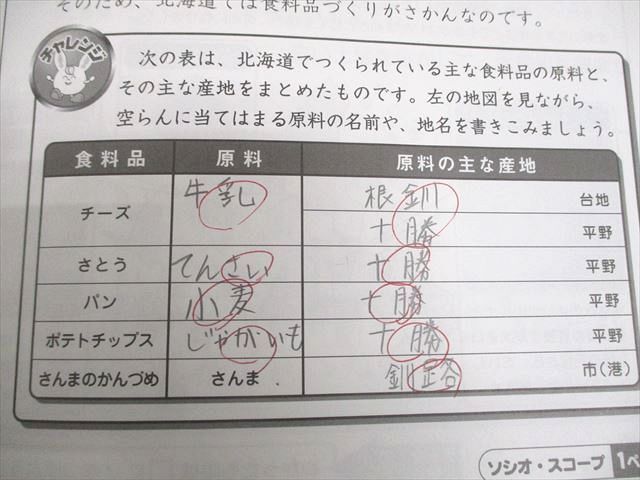 そのため、北海道では食料品づくりがさかんなのです。
チャレンジ
次の表は、北海道でつくられている主な食料品の原料と、
その主な産地をまとめたものです。左の地図を見ながら、
空らんに当てはまる原料の名前や、地名を書きこみましょう。
食料品 原料 原料の主な産地
チーズ 牛乳 根釧 台地
十勝 平野
さとう てんさい 十勝 平野
パン 小麦 十勝 平野
ポテトチップス じゃがいも 十勝 平野
さんまのかんづめ さんま 釧路 市(港)
ソシオ・スコープ 1ペ